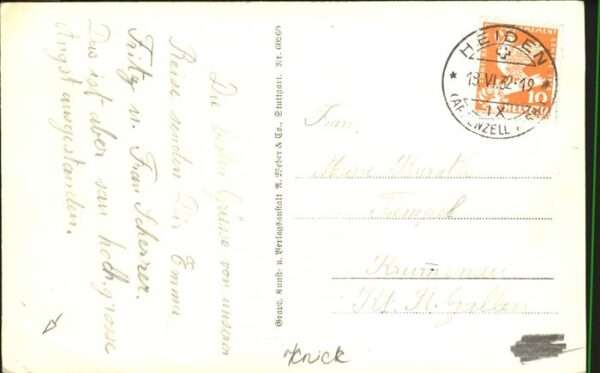 Die besten Grüsse von unserer
Reise senden Dir Emma
Fritz u. Frau Scherrer.
Das ist aber van hoth. grosse
Angst ausgestanden.
Graph. Kunst- u. Verlagsanstalt A. Weber & Co., Stuttgart. Nr.
HEIDEN
13.VI.32-19
IX
(APPENZELL
10
HELVETIA
Frau
Tempel
Krummenau
Kt. St. Gallen
Knick